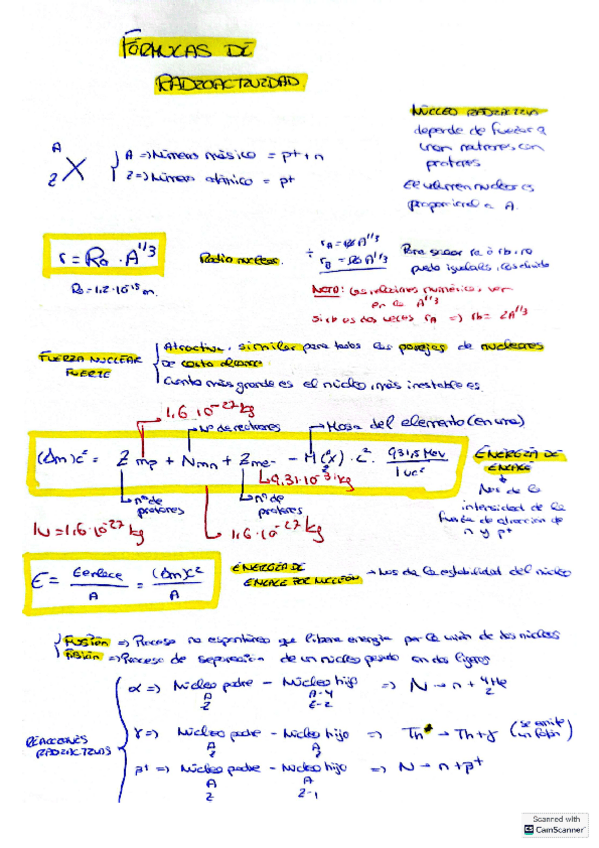 FÓRMULAS DE
RADIOACTIVIDAD
NÚCLEO RADIACTIVO
depende de fuerza q
unen neutrones con
protones
El volumen nuclear es
proporcional a A.
A
X
Z
A => Número másico = p+ + n
Z => Número atómico = p+
r = R₀ · A^1/3
R₀ = 1,2 · 10^-15 m.
Radio nuclear.
÷ rA = R₀ A^1/3
rB = R₀ A^1/3
Para sacar ra ó rb, no
puedo igualarlos, los divido
NOTA: las relaciones numéricas, van
en la A^1/3
Si rb es dos veces rA => rb = 2A^1/3
FUERZA NUCLEAR
FUERTE
Atractiva, similar para todas las parejas de nucleones
de corto alcance
Cuanto más grande es el núcleo, más inestable es.
1,6 · 10^-27 kg
Nº de neutrones
Masa del elemento (en uma)
(Δm)c² = Z mp + N mn + Z me- - M(X) · c² · 931,5 MeV / 1 uc²
9,31 · 10^-31 kg
nº de
protones
nº de
protones
1u = 1,6 · 10^-27 kg
1,6 · 10^-27 kg
ENERGÍA DE
ENLACE
Nos da la
intensidad de la
fuerza de atracción de
n y p+
E = Eenlace / A = (Δm)c² / A
ENERGÍA DE
ENLACE POR NUCLEÓN
Nos da la estabilidad del núcleo
Fusión => Proceso no espontáneo que libera energía por la unión de dos núcleos
Fisión => Proceso de separación de un núcleo pesado en dos ligeros
REACCIONES
RADIACTIVAS
α => Núcleo padre - Núcleo hijo => N → n + 4 He 2
A A-4
Z Z-2
γ => Núcleo padre - Núcleo hijo => Th* → Th + γ (se emite un fotón)
A A
Z Z
β+ => Núcleo padre - Núcleo hijo => N → n + β+
A A
Z Z-1
Scanned with
CS CamScanner